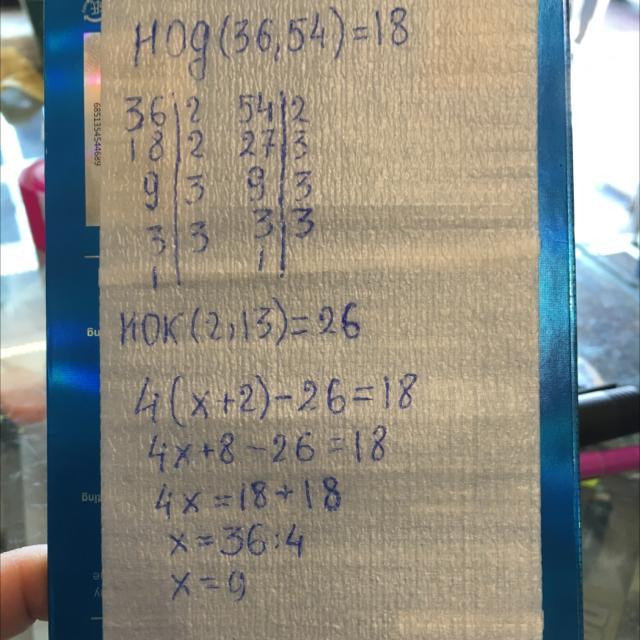 НОД(36,54)=18
36|2 54|2
18|2 27|3
9|3 9|3
3|3 3|3
1 1
НОК(2,13)=26
4(x+2)-26=18
4x+8-26=18
4x=18+18
x=36:4
x=9
6851354544689